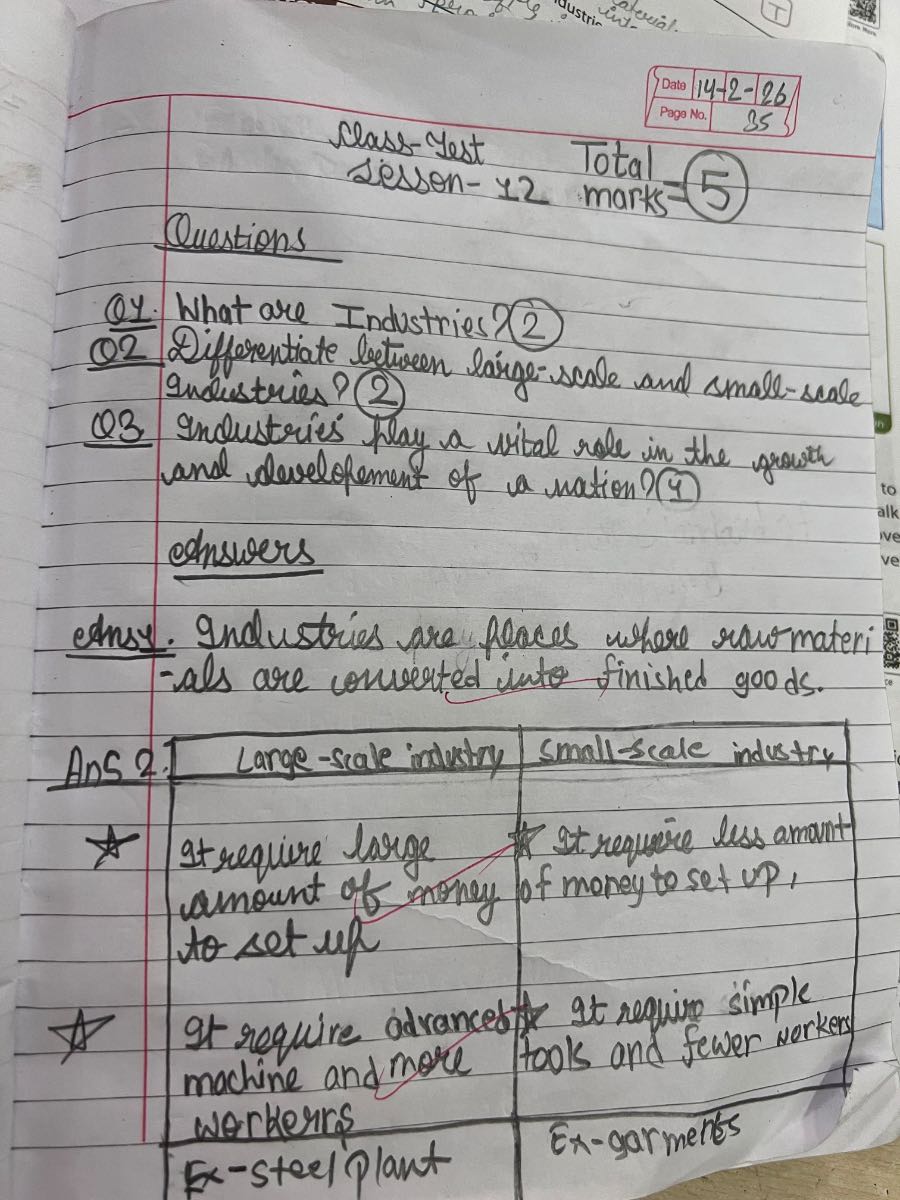 Date 14-2-26
Page No. 35
Class-Test
Lesson-12
Total marks= 5
Questions
Q1. What are Industries? 2
Q2 Differentiate between large-scale and small-scale
Industries? 2
Q3 Industries play a vital role in the growth
and developement of a nation? 1
Answers
Ans1. Industries are places where raw materi
-als are converted into finished goods.
Ans 2. Large-scale industry Small-scale industry
It require large
amount of money
to set up
It require less amount
of money to set up,
It require advanced
machine and more
workerrs
It require simple
tools and fewer workers
Ex-steel plant
Ex-garments
T
to
alk
ve
ve